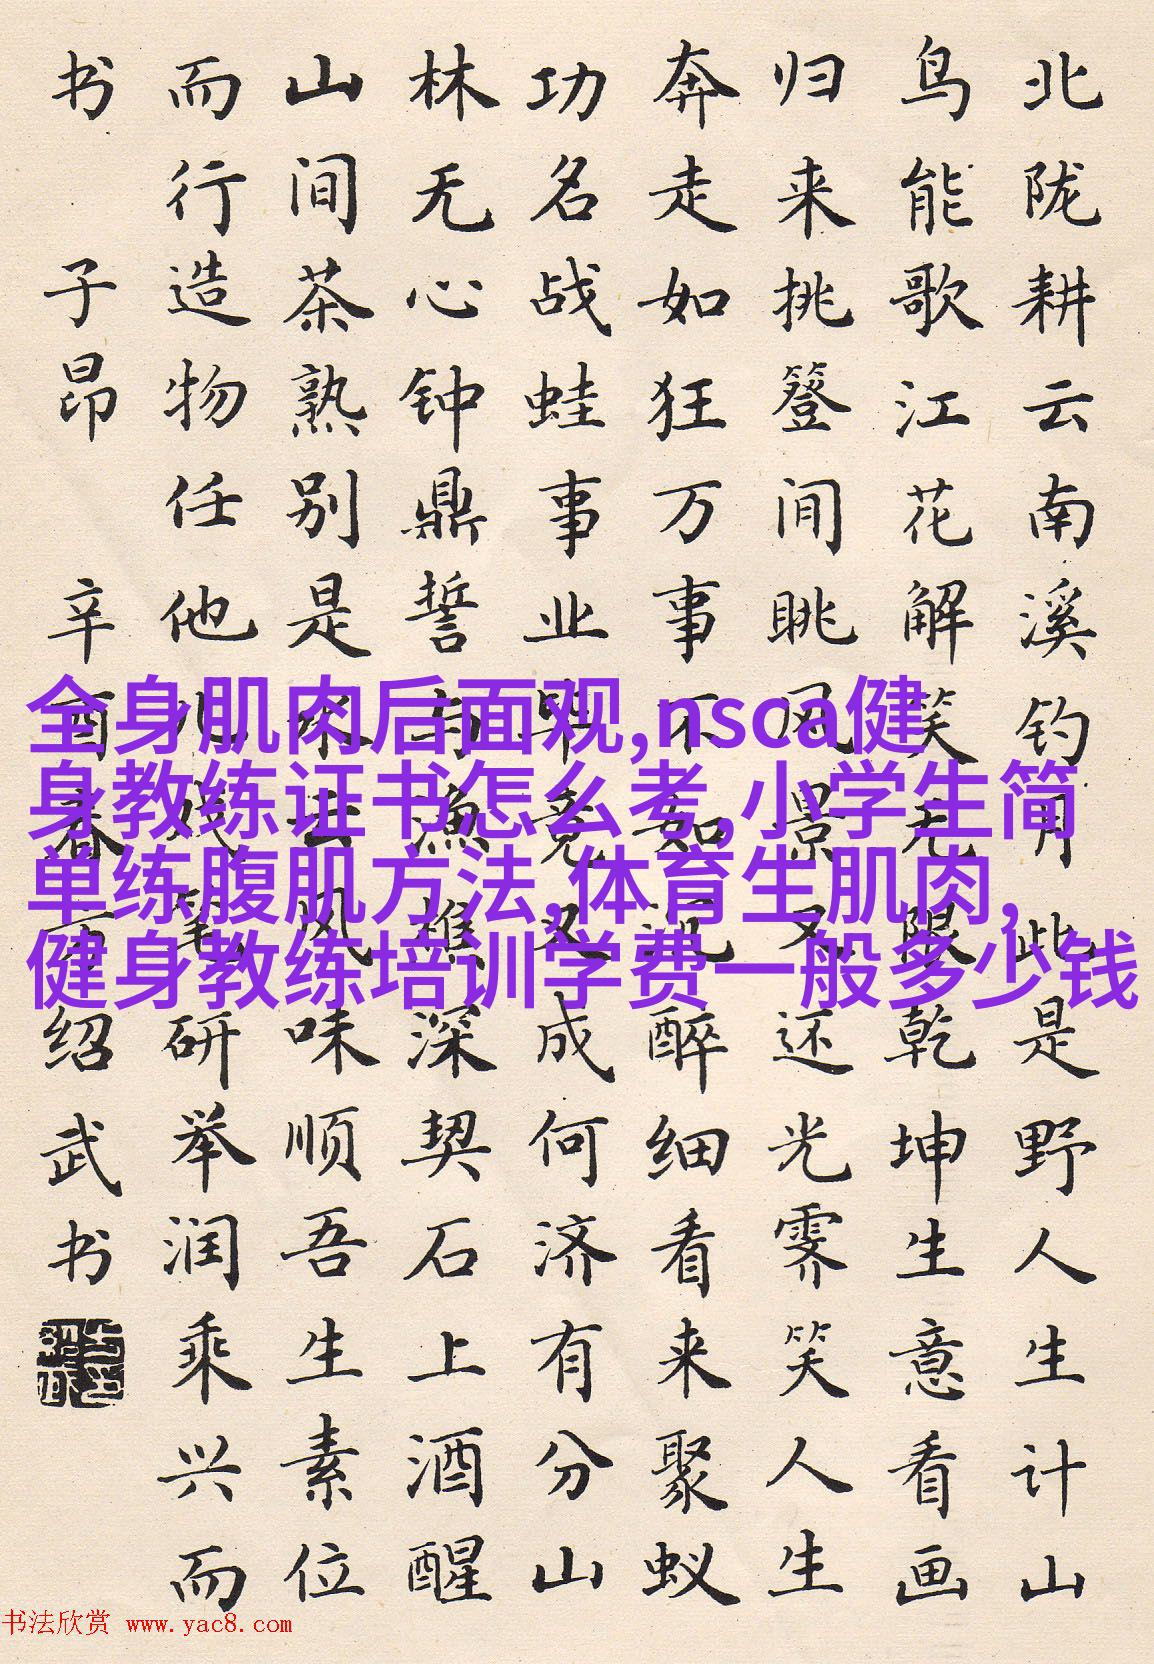 北陇耕云南溪钓月此是野人生计山
鸟能歌江花解笑无限乾坤生意看画
归来挑簦间眺风景又还光霁笑人生
奔走如狂万事不如沉醉细看来聚蚁
功名战蛙事业毕竟又成何济有分山
林无心钟鼎誓与渔樵深契石上酒醒
山间茶熟别是水云风味顺吾生素位
而行造物任他儿戏笔研举润乘兴而
书 子昂 辛酉春 绍武书
全身肌肉后面观,nsca健
身教练证书怎么考,小学生简
单练腹肌方法,体育生肌肉,
健身教练培训学费一般多少钱
书法欣赏 www.yac8.com